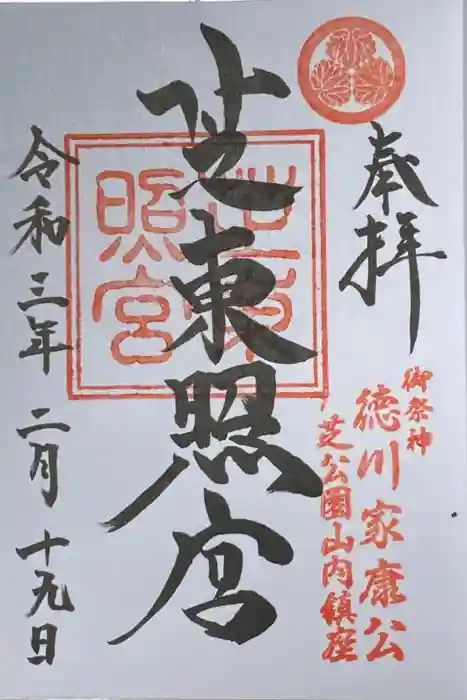 奉拝
御祭神
徳川家康公
芝公園山内鎮座
芝東照宮
芝東
照宮
令和三年二月十九日